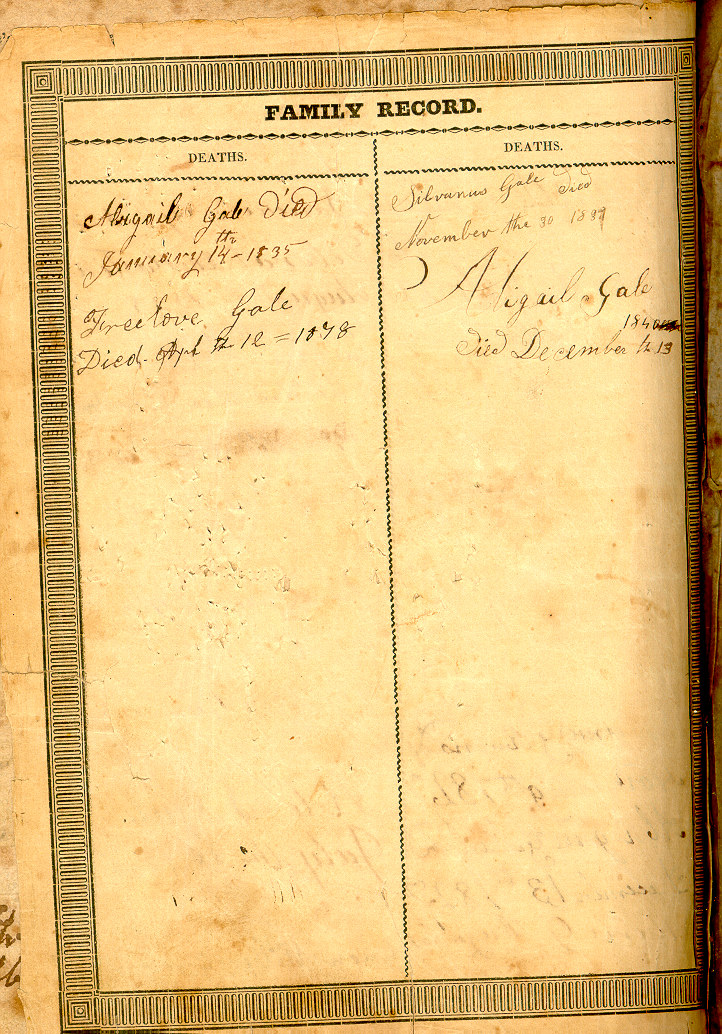 FAMILY RECORD.
DEATHS.
Abigail Gale Died
January 14th - 1835
Freelove Gale
Died Apt th 12 = 1878
DEATHS.
Silvanus Gale Died
November the 30 183
Abigail Gale
1840
Died December th 13